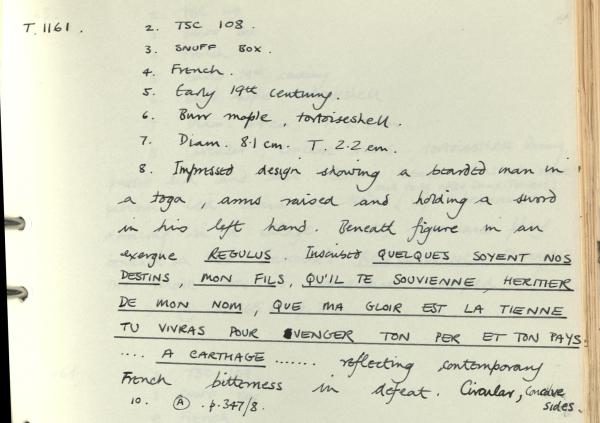 T. 1161. 2. TSC 108.
3. SNUFF BOX.
4. French.
5. Early 19th century.
6. Burr maple, tortoiseshell.
7. Diam. 8.1 cm. T. 2.2 cm.
8. Impressed design showing a bearded man in
a toga, arms raised and holding a sword
in his left hand. Beneath figure in an
exergue REGULUS. Inscribed QUELQUES SOYENT NOS
DESTINS, MON FILS, QU'IL TE SOUVIENNE, HERITIER
DE MON NOM, QUE MA GLOIR EST LA TIENNE
TU VIVRAS POUR VENGER TON PER ET TON PAYS.
.... A CARTHAGE ....... reflecting contemporary
French bitterness in defeat. Circular, concave
sides.
10. A . p.347/8.